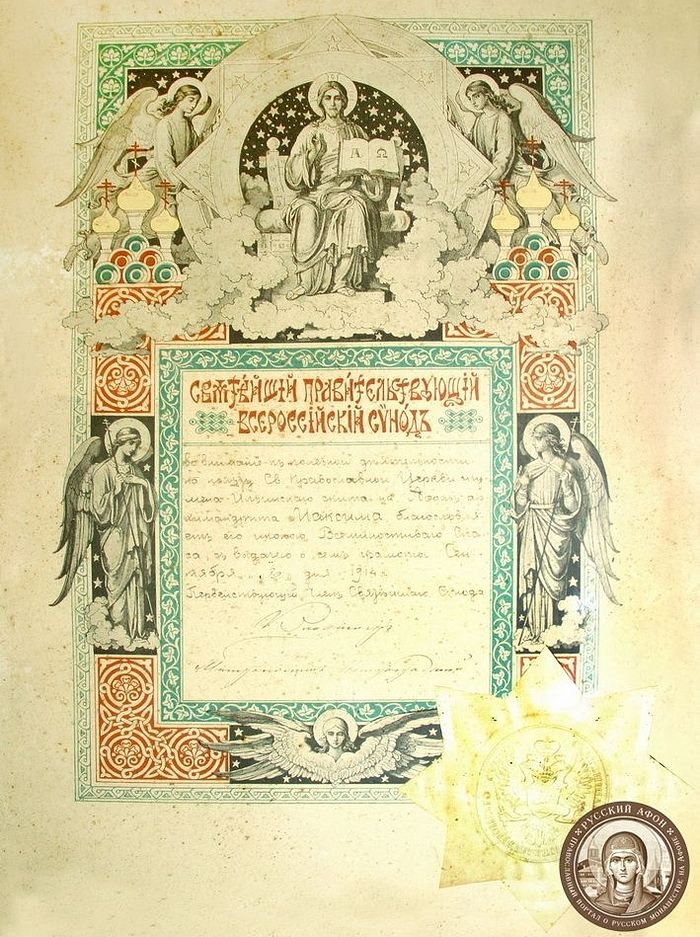 А Ω
СВѦТѢЙШІЙ ПРАВИТЕЛЬСТВУЮЩІЙ
ВСЕРОССІЙСКІЙ СѴНОДЪ
во вниманіе къ полезной дѣятельности
на пользу Св. Православной Церкви игу
мена Ильинскаго скита на Аѳонѣ ар
химандрита Максима благословля
етъ его иконою Всемилостиваго Спа
са, съ выдачею о семъ грамоты Сен
тября дня 1914 г.
Первенствующій Членъ Святѣйшаго Сѵнода
Митрополитъ
РУССКИЙ АФОН
ПРАВОСЛАВНЫЙ ПОРТАЛ О РУССКОМ МОНАШЕСТВЕ НА АФОНЕ